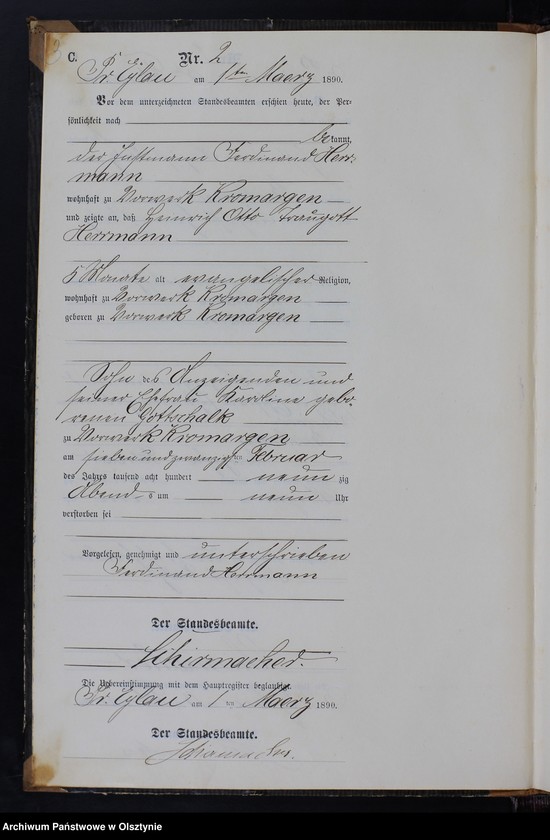 C.
Nr. 2
Pr. Eylau am 1ten Maerz 1890.
Vor dem unterzeichneten Standesbeamten erschien heute, der Per-
sönlichkeit nach
be kannt,
der Instmann Ferdinand Herr-
mann
wohnhaft zu Vorwerk Kromargen
und zeigte an, daß Heinrich Otto Traugott
Herrmann
5 Monate alt evangelischer Religion,
wohnhaft zu Vorwerk Kromargen
geboren zu Vorwerk Kromargen
Sohn des Anzeigenden und
seiner Ehefrau Karoline gebo-
renen Gottschalk
zu Vorwerk Kromargen
am siebenundzwanzigsten Februar
des Jahres tausend acht hundert neun zig
Abends um neun Uhr
verstorben sei
Vorgelesen, genehmigt und unterschrieben
Ferdinand Herrmann
Der Standesbeamte.
Schirmacher.
Die Uebereinstimmung mit dem Hauptregister beglaubigt.
Pr. Eylau am 1ten Maerz 1890.
Der Standesbeamte.
Schirmacher.
Archiwum Państwowe w Olsztynie